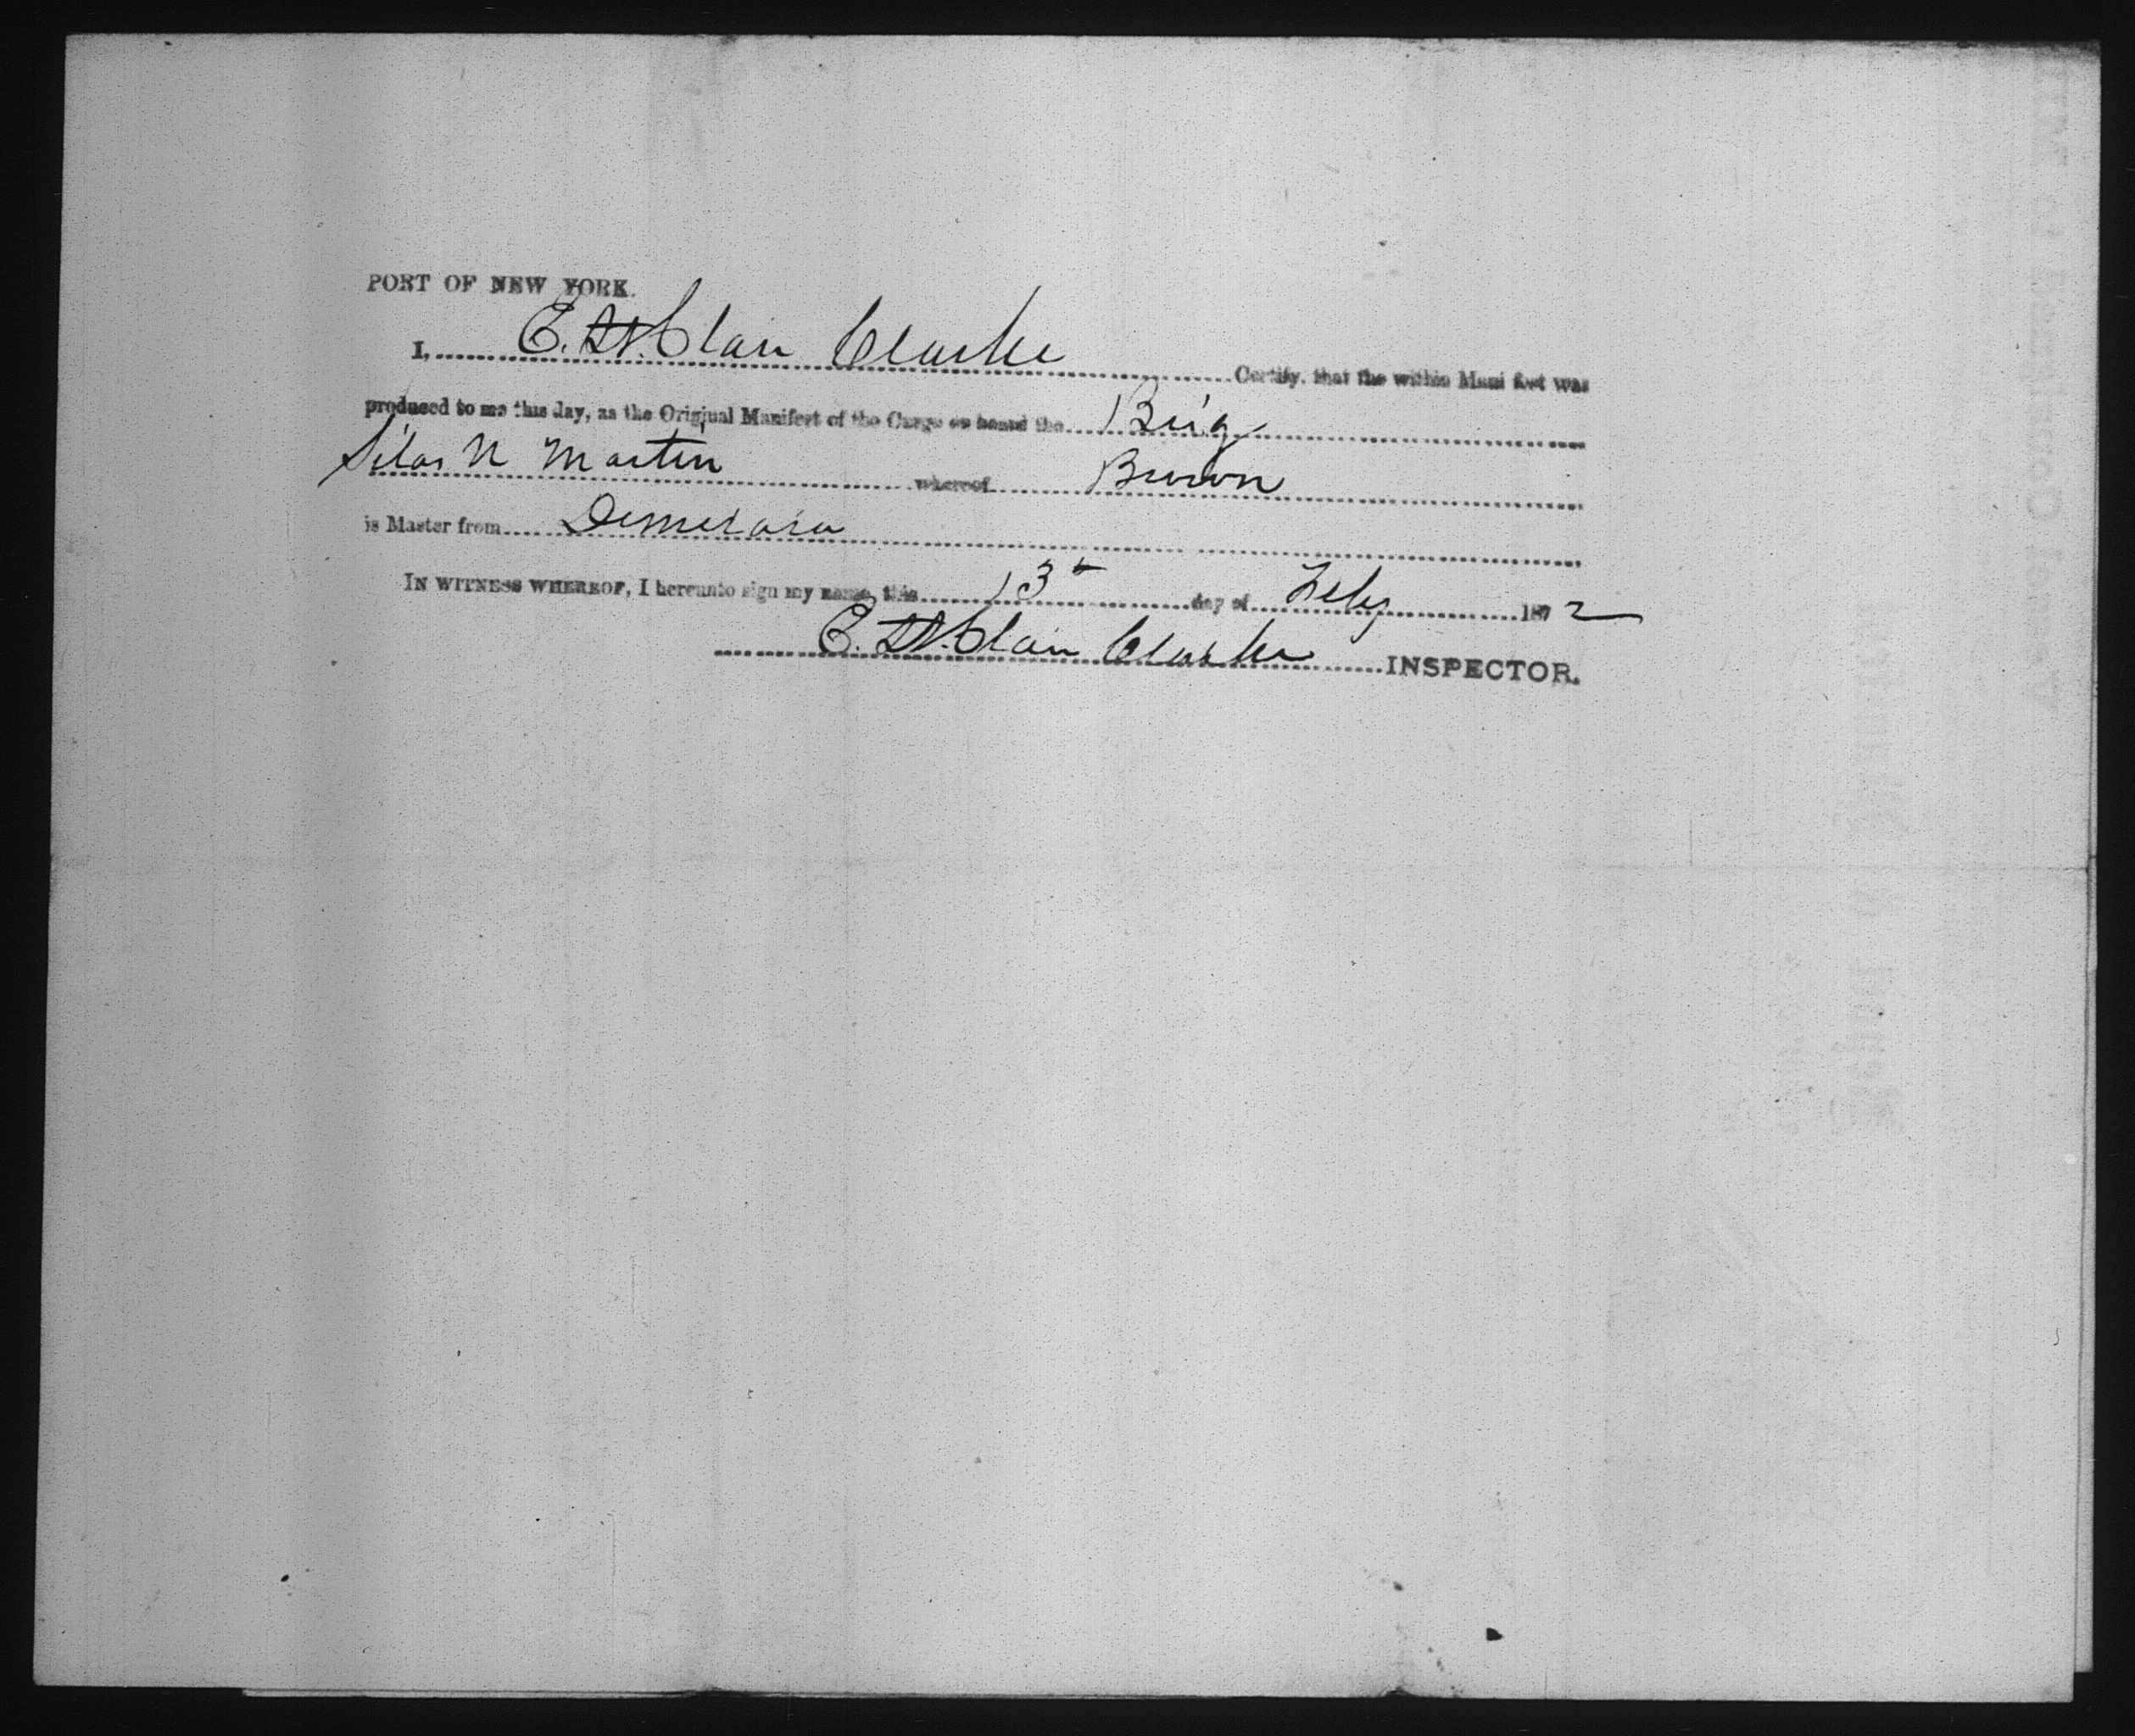 PORT OF NEW YORK.
I, E. St. Clair Clarke Certify, that the within Mani fest was
produced to me this day, as the Original Manifest of the Cargo on board the Brig
Silas N Martin whereof Brown
is Master from Demerara
IN WITNESS WHEREOF, I hereunto sign my name, this 13th day of Feby 1872
E. St. Clair Clarke INSPECTOR.